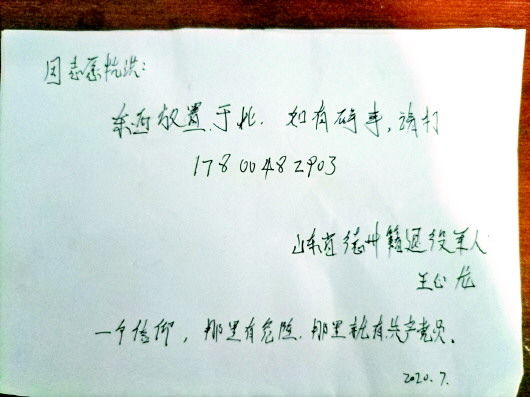 因志愿抗洪:
东西放置于此. 如有碍事, 请打
17800482903
山东省德州籍退役军人
王正龙
一个信仰, 那里有危险. 那里就有共产党员.
2020.7.